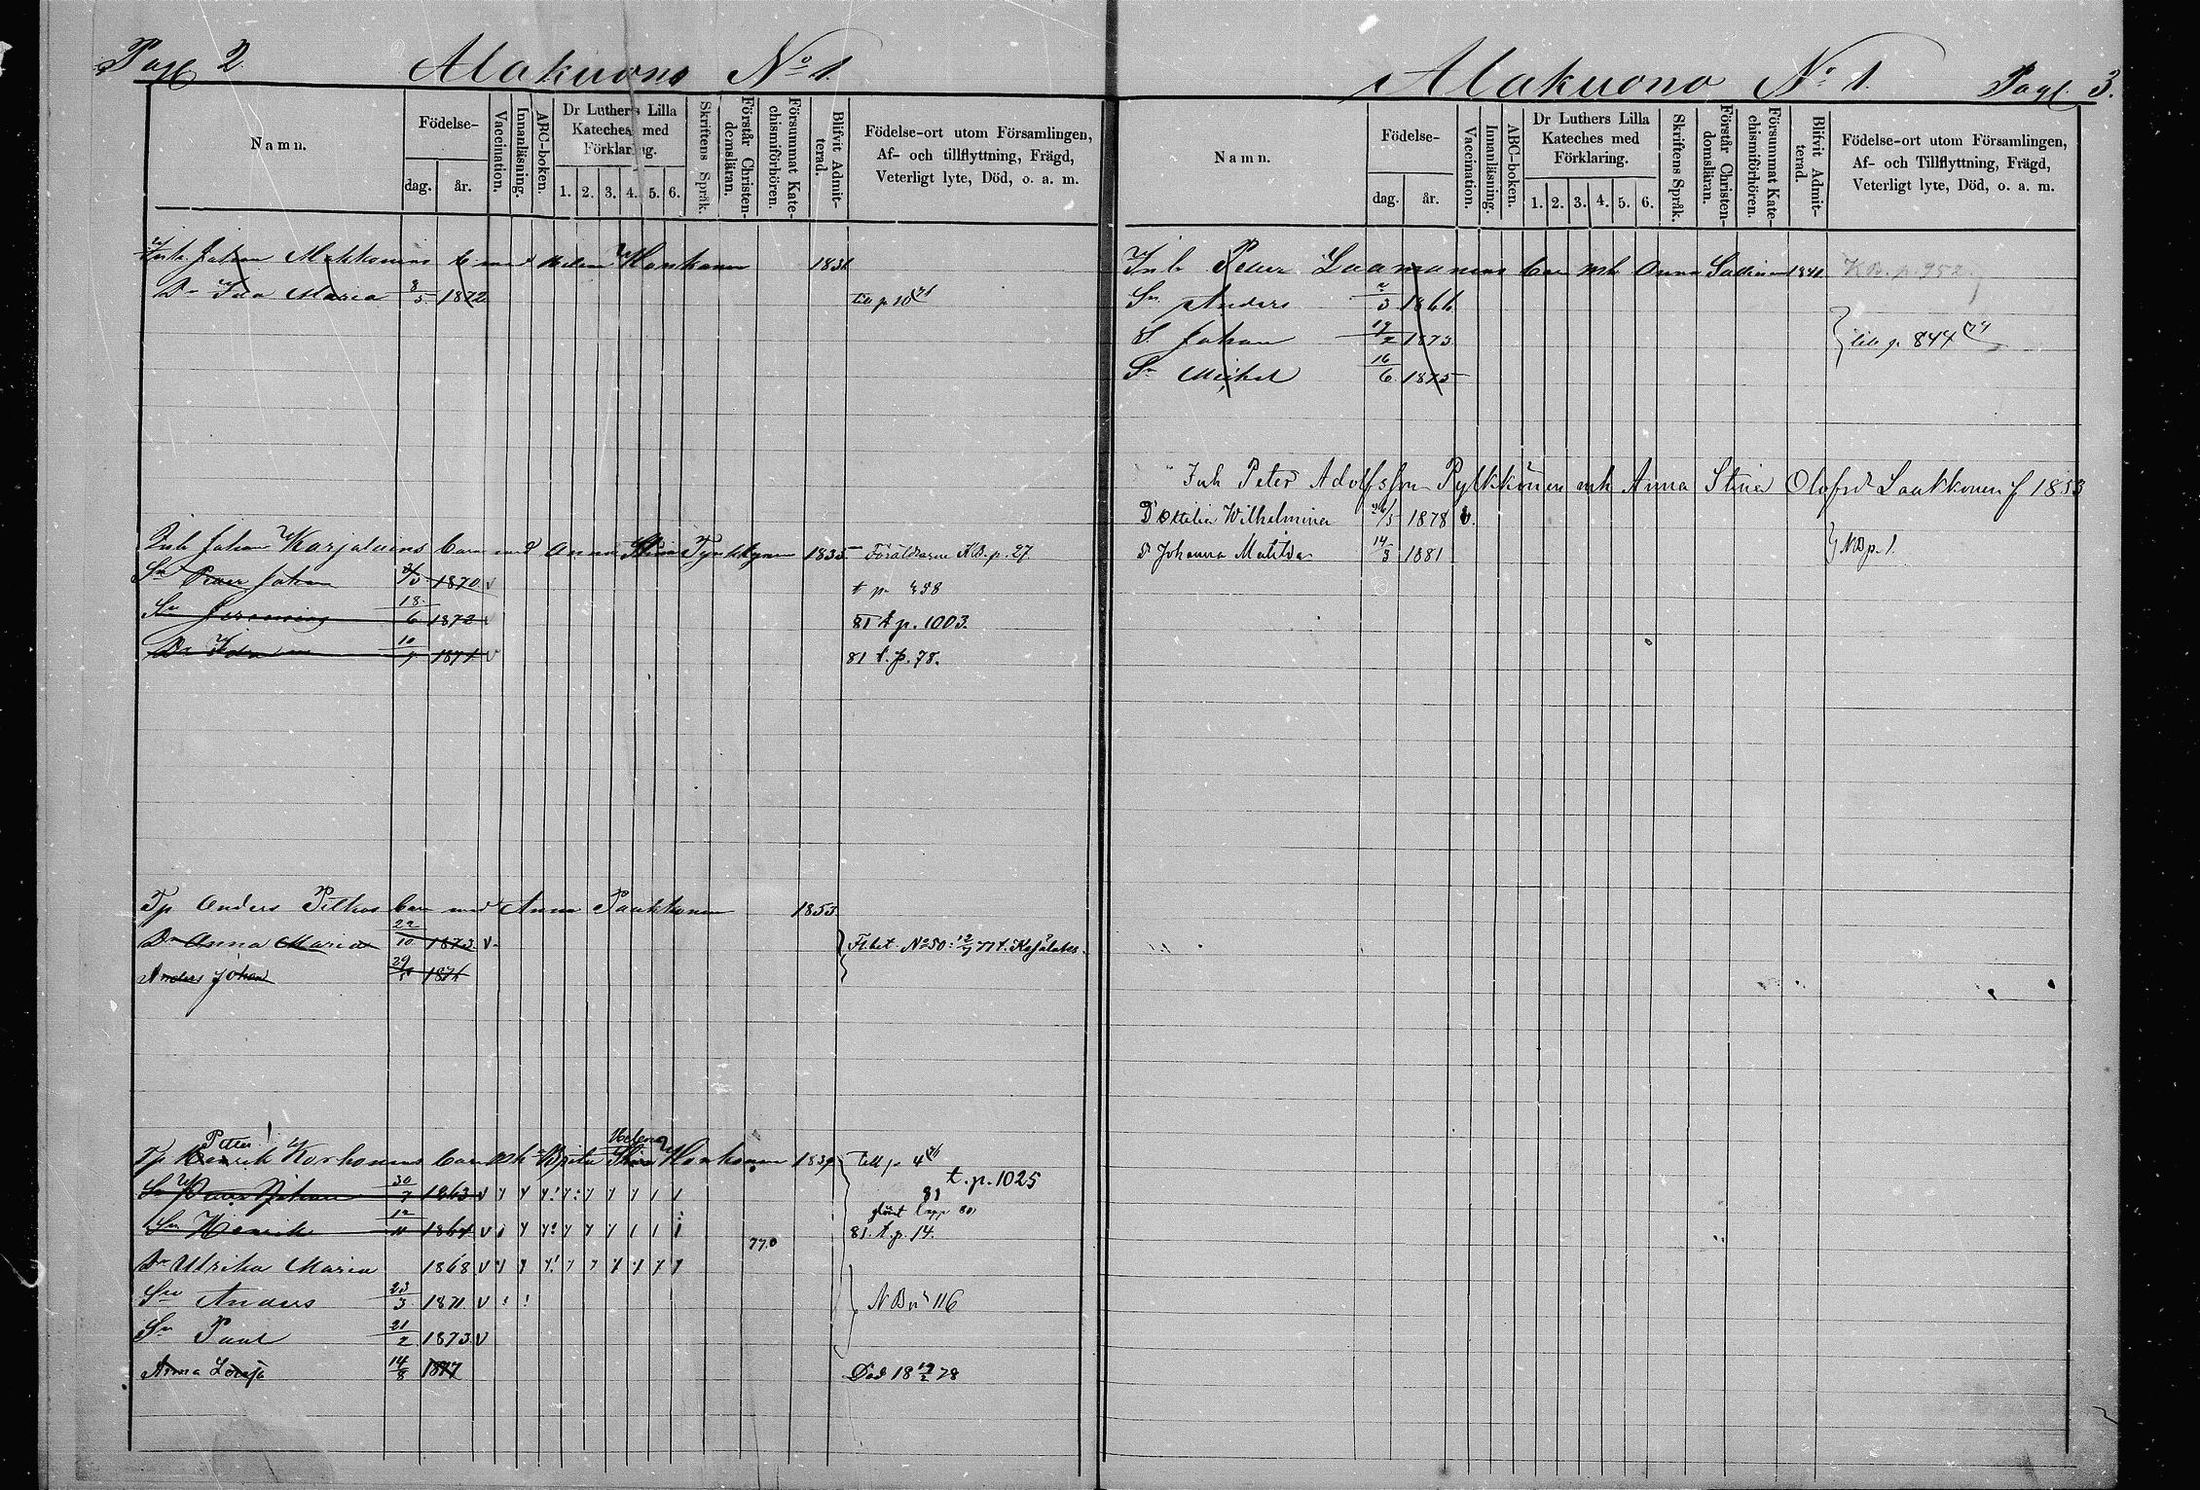 Pag 2
Alakuono No 1.
Namn.
Födelse-
dag.
år.
Vaccination.
Innanläsning.
ABC-boken.
Dr Luthers Lilla
Kateches med
Förklaring.
1. 2. 3. 4. 5. 6.
Skriftens Språk.
Förstår Christen-
domsläran.
Försummat Kate-
chismiförhören.
Blifvit Admit-
terad.
Födelse-ort utom Församlingen,
Af- och tillflyttning, Frägd,
Veterligt lyte, Död, o. a. m.
Inh. Johan Makkonens barn med Helena Honkanen 1831
Dr Ida Maria 8/5 1872
Inh Johan Karjalains barn med Anna Stina Tynkkynen 1835 Föräldrarne KB. p. 27
Sn Petter Johan 1870 v t p 458
Sn Jeremias 18/6 1872 v 81 t p. 1003.
Dr Ida 10/7 1871 v 81 t. p. 78.
Tp Anders Pitkäs barn med Anna Paakkonen 1855
Dr Anna Maria 22/10 1873 v Fl bet No 50: 12/7 77 t.
Anders Johan 29 1876
Petter Helena
Tp Henrik Korhonens barn mh Brita Stina Honkanen 1839 till p 4
t. p. 1025
Sn Petter Johan 30/7 1863 v 81
Sn Henrik 12/11 1864 v 81. t. p. 14.
77.0
Dr Ulrika Maria 1868 v
Sn Anders 23/3 1871 v NB n 116
Sn Paul 21/2 1873 v
Anna Lovisa 14/8 1877 Död 18 19/2 78
Alakuono No 1.
Pag. 3.
Namn.
Födelse-
dag.
år.
Vaccination.
Innanläsning.
ABC-boken.
Dr Luthers Lilla
Kateches med
Förklaring.
1. 2. 3. 4. 5. 6.
Skriftens Språk.
Förstår Christen-
domsläran.
Försummat Kate-
chismiförhören.
Blifvit Admit-
terad.
Födelse-ort utom Församlingen,
Af- och Tillflyttning, Frägd,
Veterligt lyte, Död, o. a. m.
Inh Petter Laamanens barn mh Anna 1840 KB. p. 952
Sn Anders 2/3 1866
S. Johan 19/2 1873 till p. 844
Sn Michel 16/6 1875
Inh Peter Adolfsson Pylkkönen mh Anna Stina Olofsd Laakkonen f 1853
D Ottilia Wilhelmina 1878 v.
D Johanna Matilda 14/3 1881 NB p. 1.